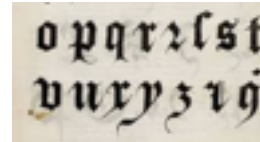 o p q r ꝛ ſ s t
v u x y z